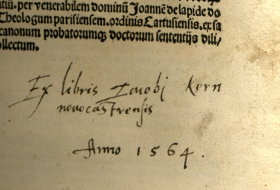 tiū. per venerabilem dominū Joannē de lapide do
Theologum parisiensem. ordinis Cartusiensis. ex sa
canonum probatorumqƺ doctorum sententijs dili
ollectum.
Ex libris Iacobj Kern
novocastrensis
Anno 1564.